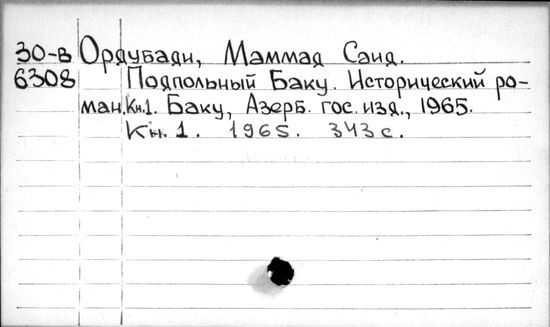 30-В Ордубади, Маммад Саид.
6308 Подпольный Баку. Исторический ро-
ман. Кн.1. Баку, Азерб. гос. изд., 1965.
Кн. 1. 1965. 343 с.